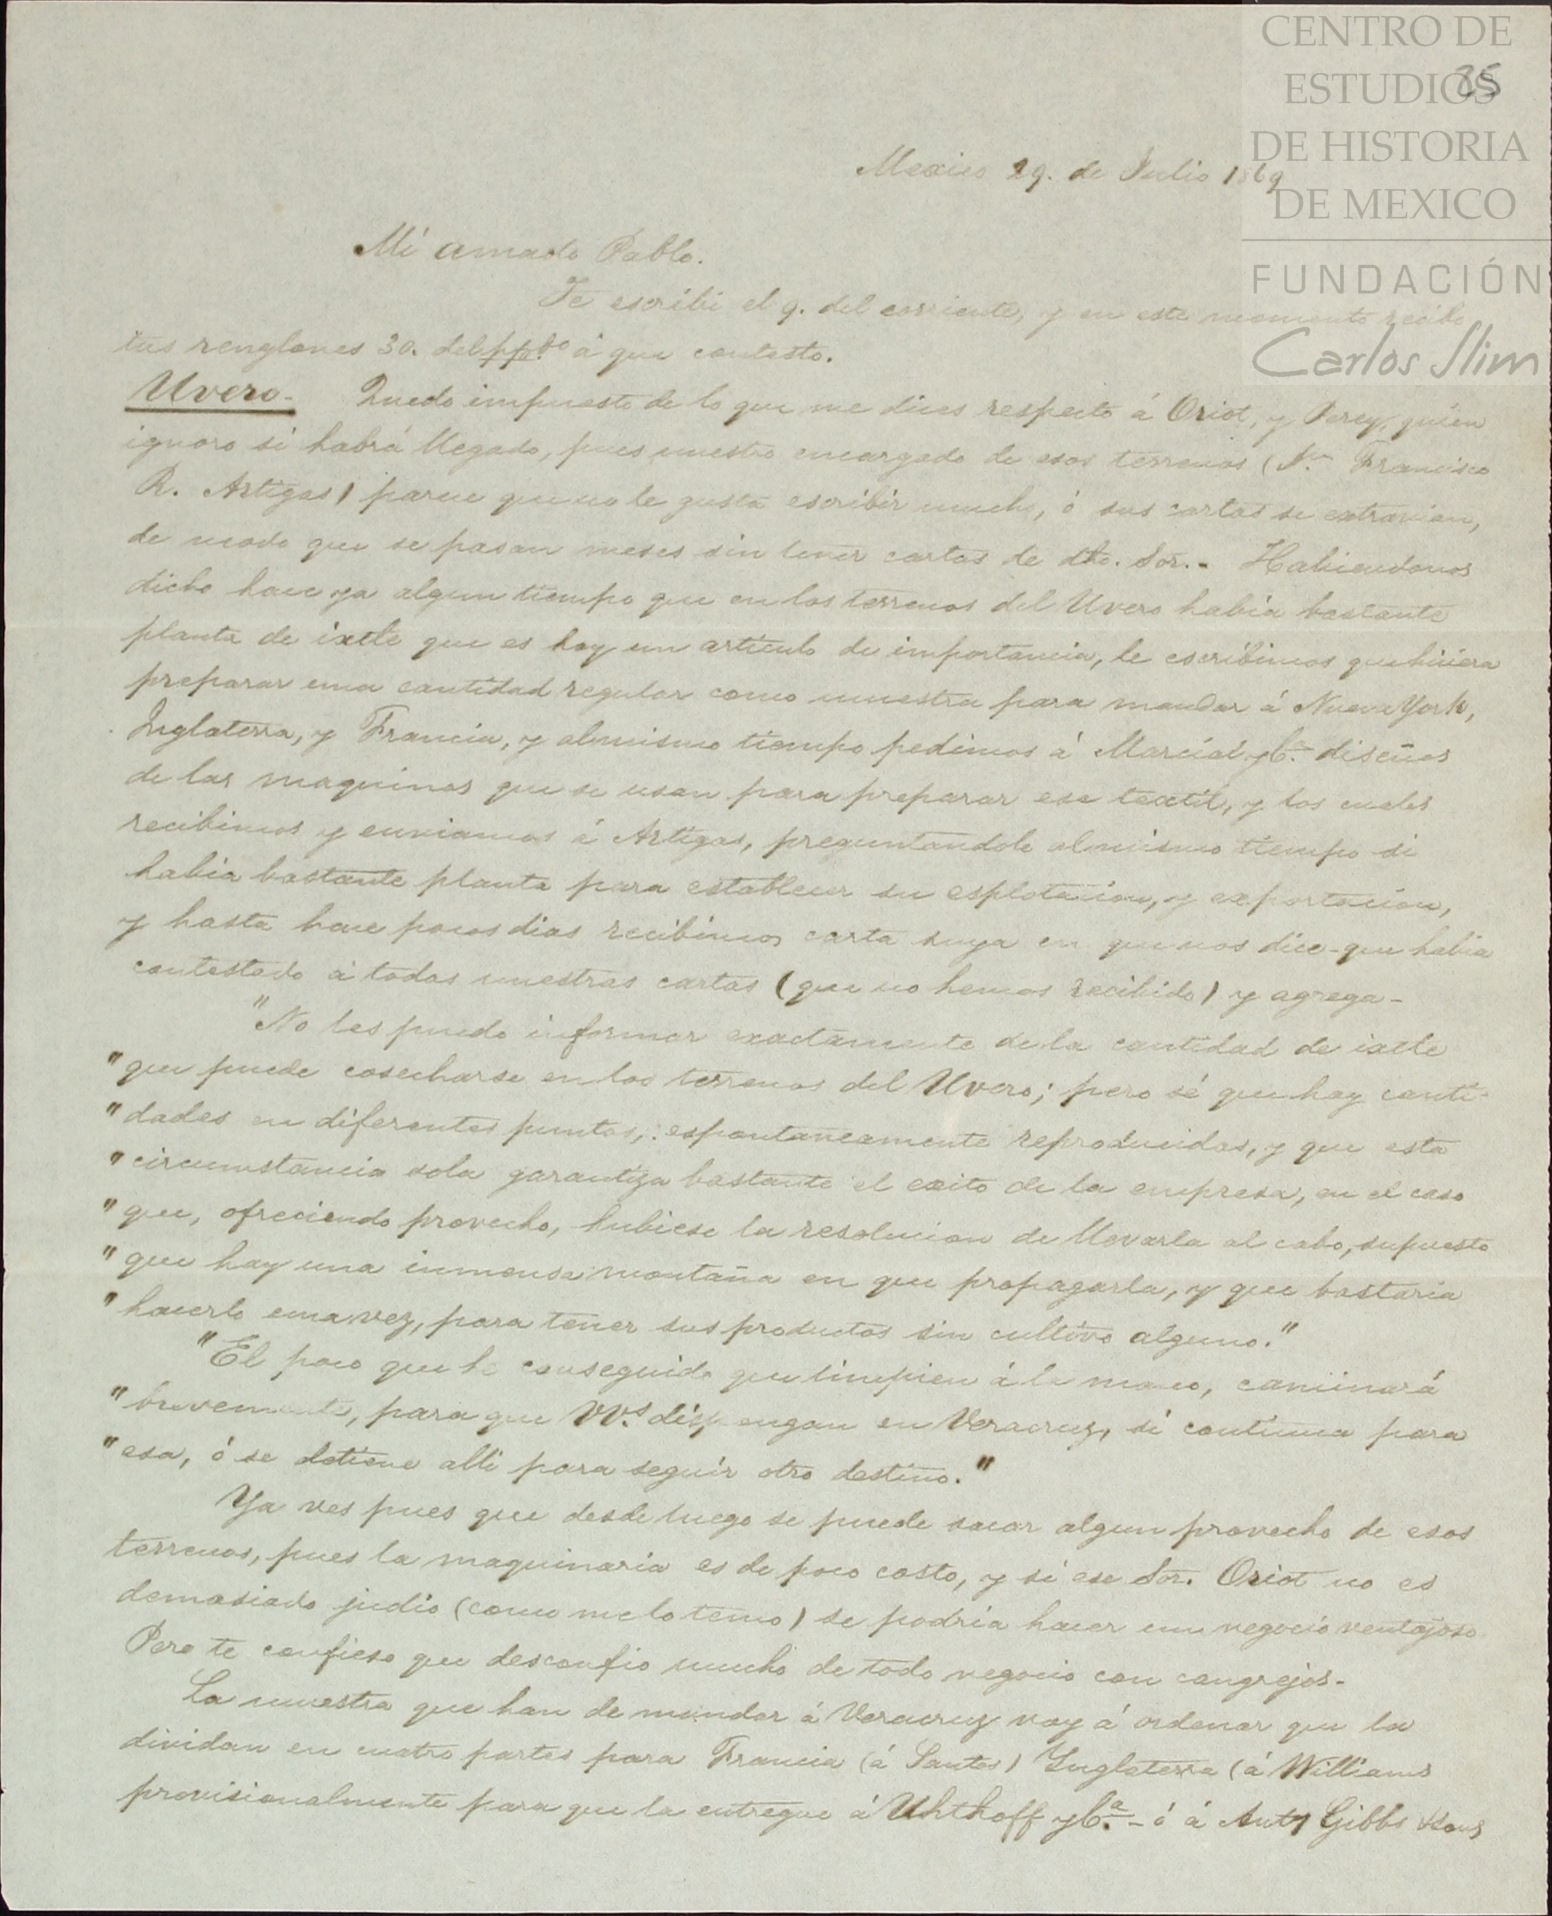 CENTRO DE
ESTUDIOS
DE HISTORIA
DE MEXICO
FUNDACIÓN
Carlos Slim
35
Mexico 29. de Julio 1869
Mi amado Pablo.
Te escribi el 9. del corriente, y en este momento recibo
tus renglones 30. del ppdo. á que contesto.
Uvero- Quedo impuesto de lo que me dices respecto á Oriot, y Perey, quien
ignoro si habrá llegado, pues nuestro encargado de esos terrenos (Dn. Francisco
R. Artigas) parece que no le gusta escribir mucho, ó sus cartas se extravian,
de modo que se pasan meses sin tener cartas de dho. Sor.- Habiendonos
dicho hace ya algun tiempo que en los terrenos del Uvero habia bastante
planta de ixtle que es hoy un articulo de importancia, le escribimos que hiciera
preparar una cantidad regular como muestra para mandar á Nueva York,
Inglaterra, y Francia, y al mismo tiempo pedimos á Marcial y Ca. diseños
de las maquinas que se usan para preparar ese textil, y los cuales
recibimos y enviamos á Artigas, preguntandole al mismo tiempo si
habia bastante planta para establecer su esplotacion, y exportacion,
y hasta hace pocos dias recibimos carta suya en que nos dice-que habia
contestado á todas nuestras cartas (que no hemos recibido) y agrega-
"No les puedo informar exactamente de la cantidad de ixtle
"que puede cosecharse en los terrenos del Uvero; pero sé que hay canti-
"dades en diferentes puntos, espontaneamente reproducidas, y que esta
"circunstancia sola garantiza bastante el exito de la empresa, en el caso
"que, ofreciendo provecho, hubiese la resolucion de llevarla al cabo, supuesto
"que hay una inmensa montaña en que propagarla, y que bastaria
"hacerlo una vez, para tener sus productos sin cultivo alguno."
"El poco que he conseguido que limpien á la mano, caminará
"brevemente, para que VV.s dispongan en Veracruz, si continua para
"esa, ó se detiene alli para seguir otro destino."
Ya ves pues que desde luego se puede sacar algun provecho de esos
terrenos, pues la maquinaria es de poco costo, y si ese Sor. Oriot no es
demasiado judio (como me lo temo) se podria hacer un negocio ventajoso
Pero te confieso que desconfio mucho de todo negocio con cangrejos-
La muestra que han de mandar á Veracruz voy á ordenar que la
dividan en cuatro partes para Francia (á Santos) Inglaterra (á Williams
provisionalmente para que la entregue á Uhthoff y Ca.- ó á Anty Gibbs & Sons